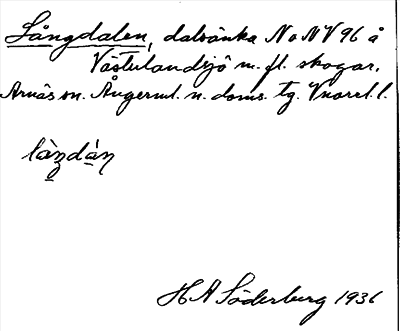 Långdalen, dalsänka N o NV 96 å
Västulandsjö m. fl. skogar.
Arnäs sn. Ångerml. n. doms. tg. Vnorrl. l.
làŋdáŋ
H A Söderberg 1936